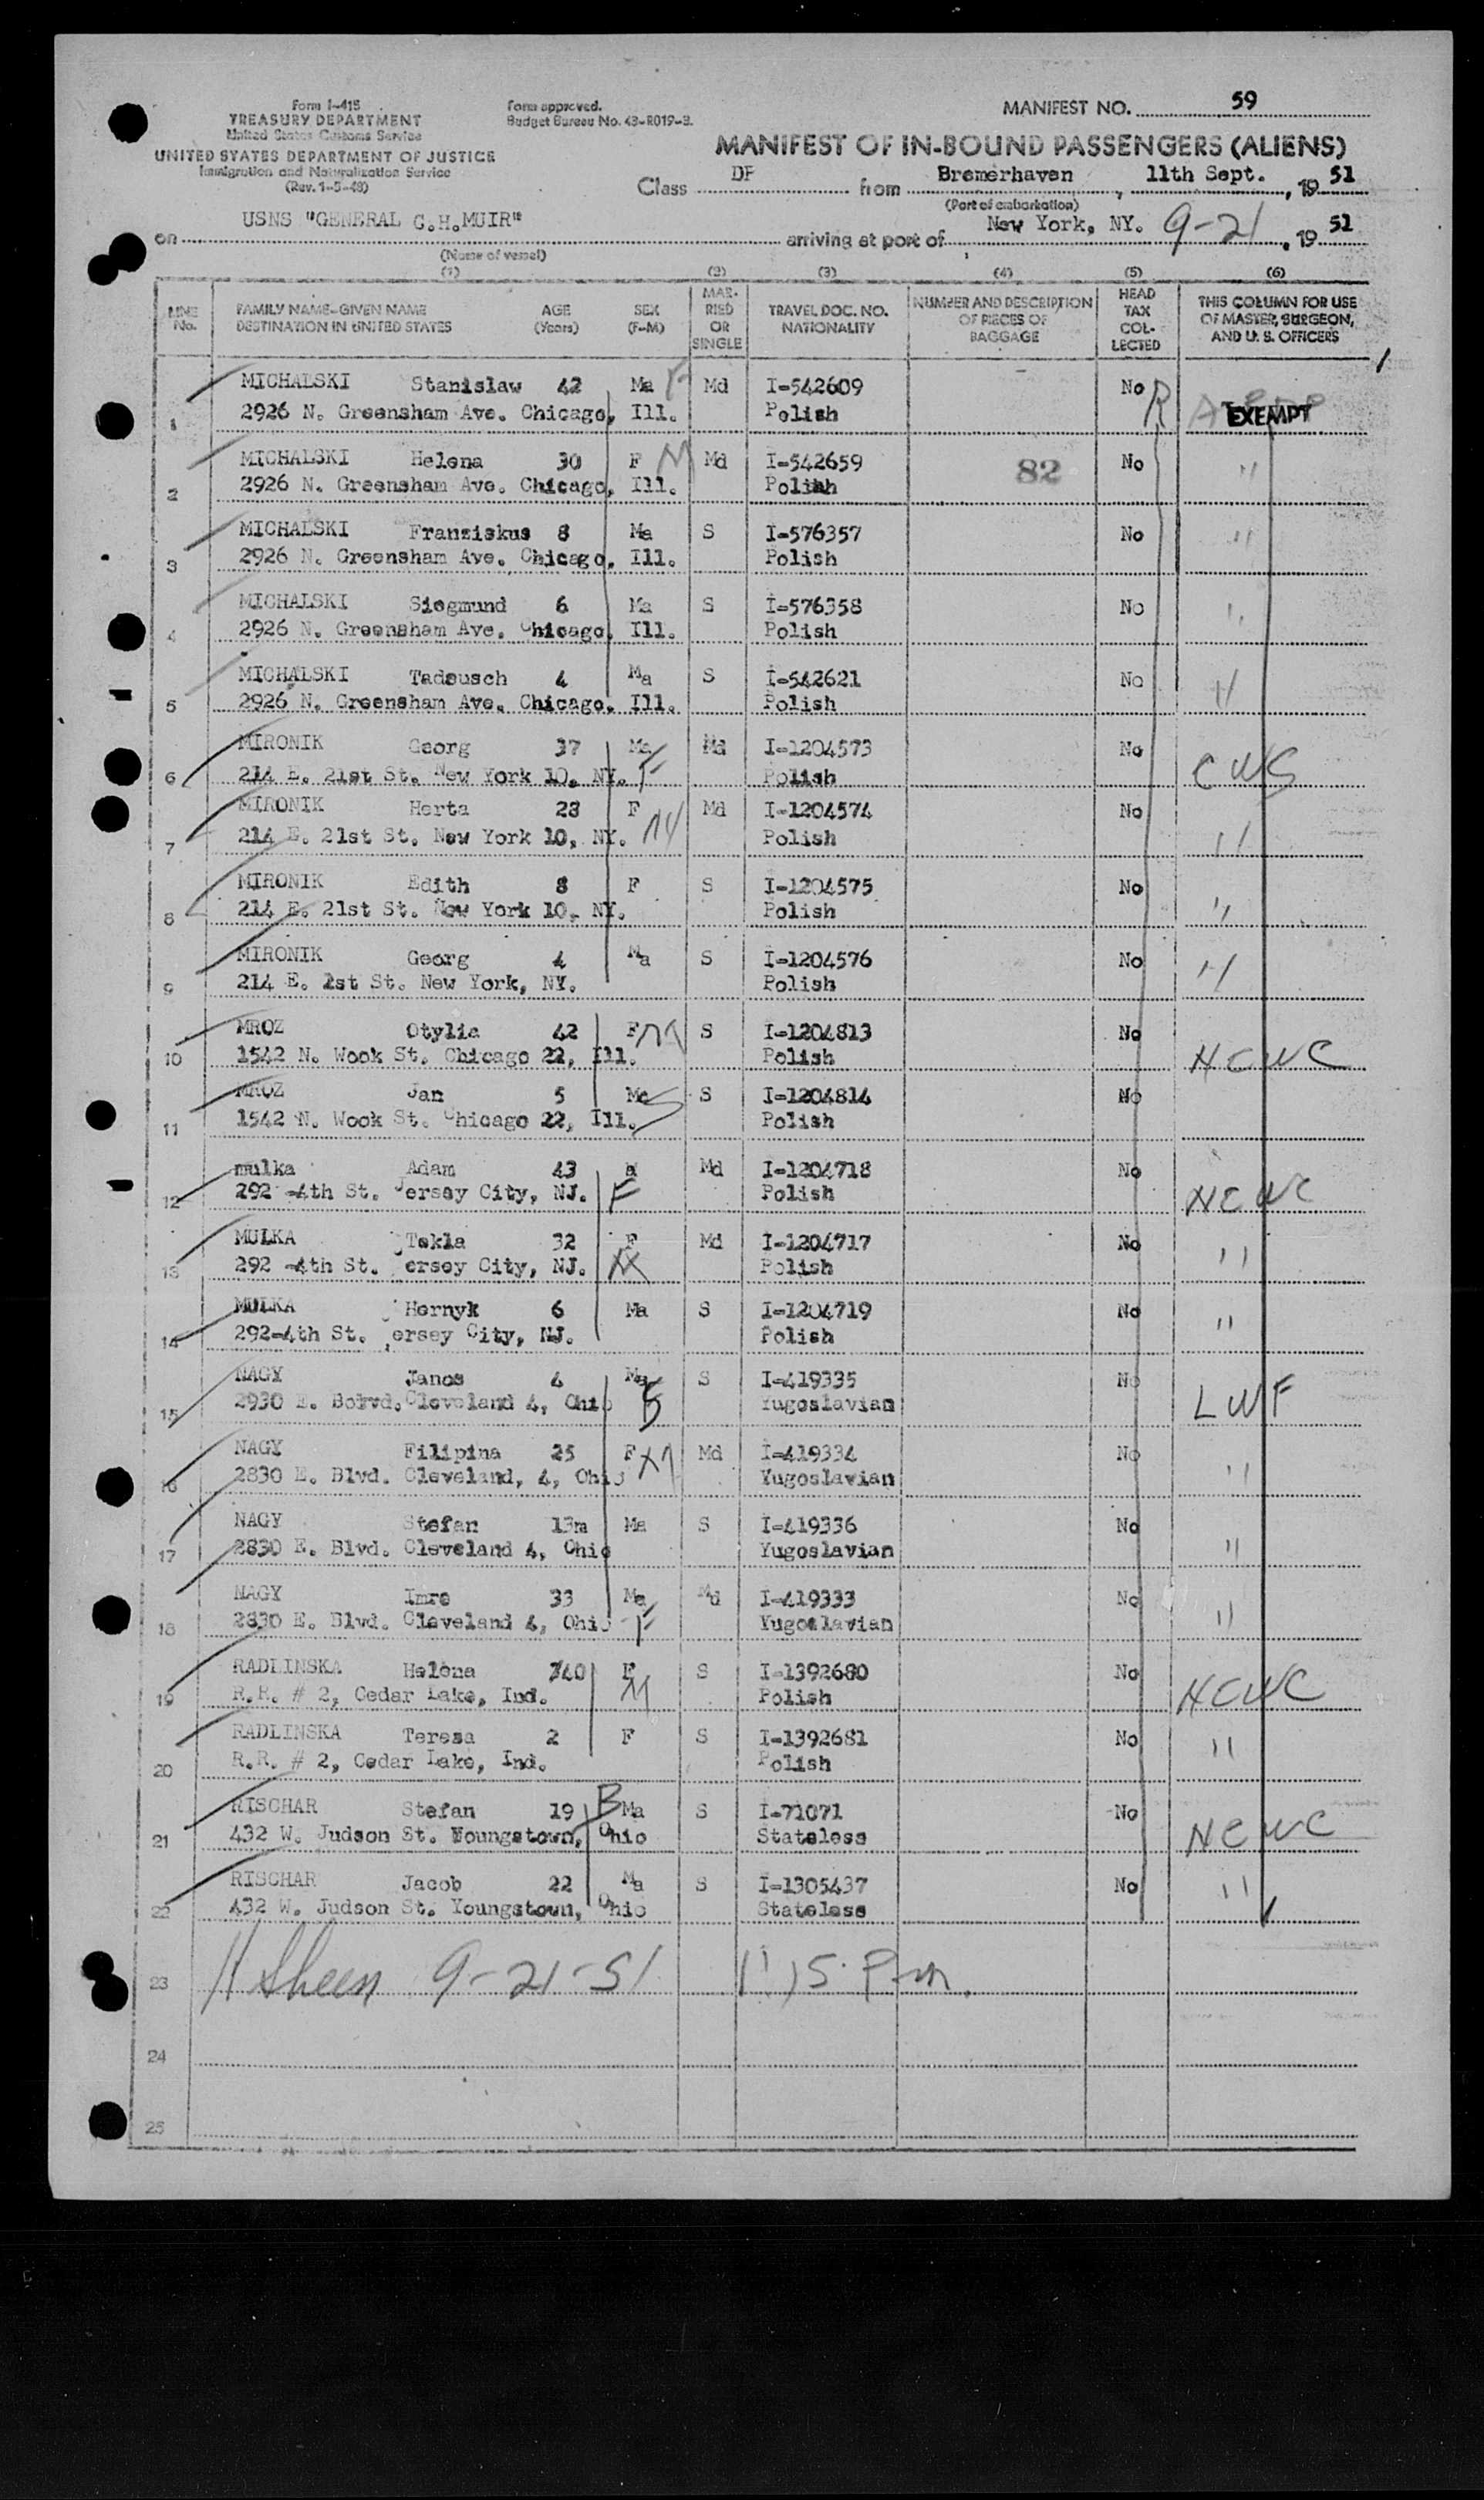 Form I-415
TREASURY DEPARTMENT
United States Customs Service
UNITED STATES DEPARTMENT OF JUSTICE
Immigration and Naturalization Service
(Rev. 1-5-48)
Form approved.
Budget Bureau No. 43-R019-3.
MANIFEST NO. 59
MANIFEST OF IN-BOUND PASSENGERS (ALIENS)
Class DP from Bremerhaven, 11th Sept., 1951
(Port of embarkation)
on USNS "GENERAL C.H.MUIR" arriving at port of New York, NY. 9-21, 1951
(Name of vessel)
(1) (2) (3) (4) (5) (6)
LINE No. FAMILY NAME-GIVEN NAME DESTINATION IN UNITED STATES AGE (Years) SEX (F-M) MAR-RIED OR SINGLE TRAVEL DOC. NO. NATIONALITY NUMBER AND DESCRIPTION OF PIECES OF BAGGAGE HEAD TAX COL-LECTED THIS COLUMN FOR USE OF MASTER, SURGEON, AND U. S. OFFICERS
MICHALSKI Stanislaw 42 Ma F Md I-542609 No R
1 2926 N. Greensham Ave. Chicago, Ill. Polish EXEMPT
MICHALSKI Helena 30 F M Md I-542659 82 No "
2 2926 N. Greensham Ave. Chicago, Ill. Polish
MICHALSKI Franziskus 8 Ma S I-576357 No "
3 2926 N. Greensham Ave. Chicago, Ill. Polish
MICHALSKI Siegmund 6 Ma S I-576358 No "
4 2926 N. Greensham Ave. Chicago, Ill. Polish
MICHALSKI Tadeusch 4 Ma S I-542621 No "
5 2926 N. Greensham Ave. Chicago, Ill. Polish
MIRONIK Georg 37 Ma F Md I-1204573 No CWS
6 214 E. 21st St. New York 10, NY. Polish
MIRONIK Herta 28 F M Md I-1204574 No "
7 214 E. 21st St. New York 10, NY. Polish
MIRONIK Edith 8 F S I-1204575 No "
8 214 E. 21st St. New York 10, NY. Polish
MIRONIK Georg 4 Ma S I-1204576 No "
9 214 E. 1st St. New York, NY. Polish
MROZ Otylia 42 F M S I-1204813 No NCWC
10 1542 N. Wook St. Chicago 22, Ill. Polish
MROZ Jan 5 Ma S S I-1204814 No
11 1542 N. Wook St. Chicago 22, Ill. Polish
mulka Adam 43 a F Md I-1204718 No NCWC
12 292 -4th St. Jersey City, NJ. Polish
MULKA Tekla 32 F M Md I-1204717 No "
13 292 -4th St. Jersey City, NJ. Polish
MULKA Hernyk 6 Ma S I-1204719 No "
14 292-4th St. Jersey City, NJ. Polish
NAGY Janos 4 Ma S S I-419335 No LWF
15 2930 E. Bolvd. Cleveland 4, Ohio Yugoslavian
NAGY Filipina 25 F M Md I-419334 No "
16 2830 E. Blvd. Cleveland, 4, Ohio Yugoslavian
NAGY Stefan 13m Ma S I-419336 No "
17 2830 E. Blvd. Cleveland 4, Ohio Yugoslavian
NAGY Imre 33 Ma F Md I-419333 No "
18 2830 E. Blvd. Cleveland 4, Ohio Yugoslavian
RADLINSKA Helena 40 F M S I-1392680 No NCWC
19 R.R. # 2, Cedar Lake, Ind. Polish
RADLINSKA Teresa 2 F S I-1392681 No "
20 R.R. # 2, Cedar Lake, Ind. Polish
RISCHAR Stefan 19 B Ma S I-71071 No NCWC
21 432 W. Judson St. Youngstown, Ohio Stateless
RISCHAR Jacob 22 Ma S I-1305437 No "
22 432 W. Judson St. Youngstown, Ohio Stateless
23 H Sheen 9-21-51 1:15 P.m.
24
25